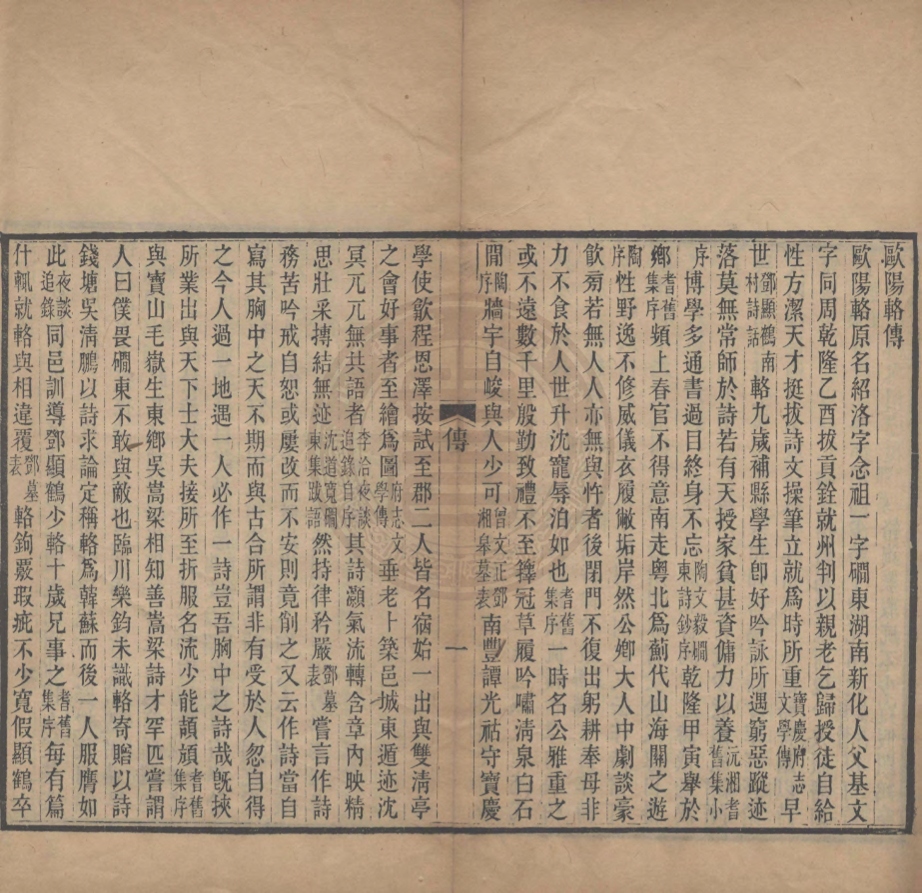 歐陽輅傳
歐陽輅原名紹洛字念祖一字磵東湖南新化人父基文
字同周乾隆乙酉拔貢銓就州判以親老乞歸授徒自給
性方潔天才挺拔詩文操筆立就爲時所重寶慶府志文學傳早
世鄧顯鶴南村詩話輅九歲補縣學生卽好吟詠所遇窮惡蹤迹
落莫無常師於詩若有天授家貧甚資傭力以養沅湘耆舊集小
序博學多通書過日終身不忘陶文毅磵東詩鈔序乾隆甲寅舉於
鄉耆舊集序頻上春官不得意南走粵北爲薊代山海關之遊
陶序性野逸不修威儀衣履敝垢岸然公卿大人中劇談豪
飲旁若無人人亦無與忤者後閉門不復出躬耕奉母非
力不食於人世升沈寵辱泊如也耆舊集序一時名公雅重之
或不遠數千里殷勤致禮不至籜冠草履吟嘯淸泉白石
間陶序牆宇自峻與人少可曾文正鄧湘皋墓表南豐譚光祜守寶慶
傳
一
學使歙程恩澤按試至郡二人皆名宿始一出與雙淸亭
之會好事者至繪爲圖府志文學傳垂老上築邑城東遁迹沈
冥兀兀無共語者李洽夜談追錄自序其詩灝氣流轉含章內映精
思壯采摶結無迹沈道寬磵東集跋語然持律矜嚴鄧墓表嘗言作詩
務苦吟戒自恕或屢改而不安則竟削之又云作詩當自
寫其胸中之天不期而與古合所謂非有受於人忽自得
之今人過一地遇一人必作一詩豈吾胸中之詩哉旣挾
所業出與天下士大夫接所至折服名流少能頡頏耆舊集序
與寶山毛嶽生東鄉吳嵩梁相知善嵩梁詩才罕匹嘗謂
人曰僕畏磵東不敢與敵也臨川樂鈞未識輅寄贈以詩
錢塘吳淸鵬以詩求論定稱輅爲韓蘇而後一人服膺如
此夜談追錄同邑訓導鄧顯鶴少輅十歲兄事之耆舊集序每有篇
什輒就輅與相違覆鄧墓表輅鉤覈瑕疵不少寬假顯鶴卒